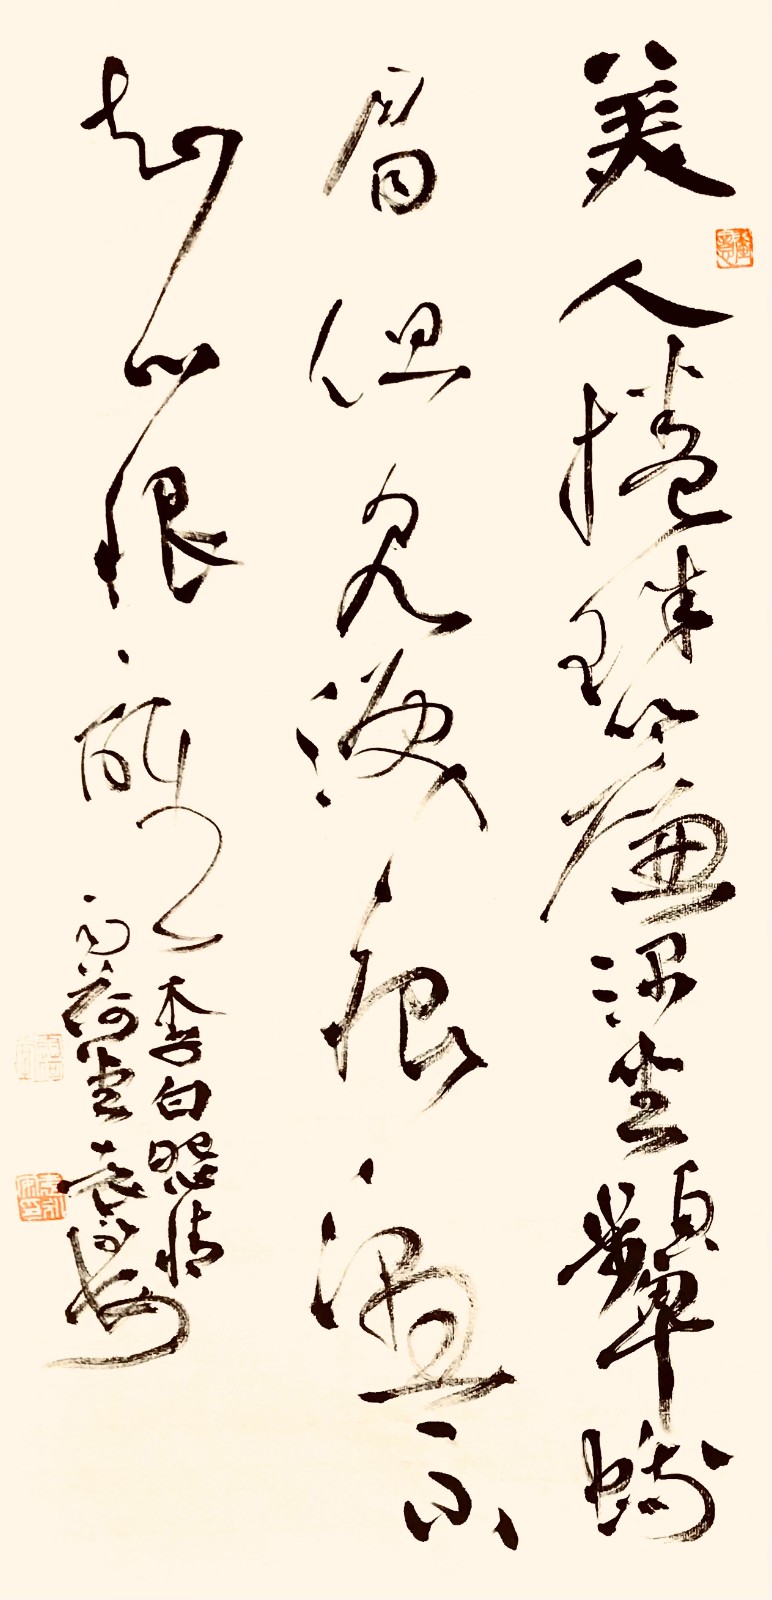 美人捲珠簾深坐顰蛾
眉但見淚痕濕不
知心恨誰
李白怨情
雨荷堂